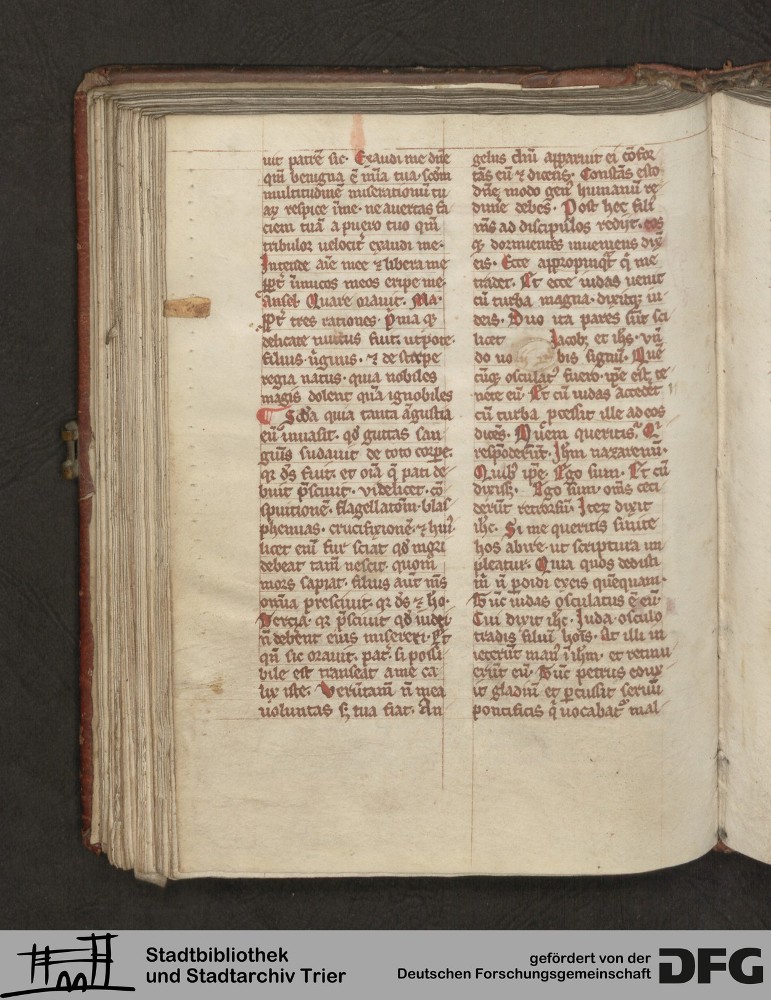 uit patrē sic. Exaudi me dn̄e
qm̄ benigna ē mīa tua. scdm̄
multitudinē miserationū tu
aꝝ respice ī me. ne auertas fa
ciem tuā a puero tuo qm̄
tribulor uelocit̄ exaudi me.
Intende aīe mee ⁊ libera me
ꝓpt̄ inimicos meos eripe me.
Ansel. Quare orauit. Ma.
ꝓpt̄ tres rationes. Prima qꝛ
delicate fuit. utpote
filius ūginis. ⁊ de stirpe
regia natus. quia nobiles
magis dolent quā ignobiles
Scd̄a quia tanta āgustia
eū inuasit. qd̓ guttas san
guīs sudauit de toto corpe.
qꝛ ds̄ fuit. et oīa q̄ pati de
buit p̄sciuit. videlicet. cō
spuitionē. flagellatōm. blas
phemias. crucifixionē. ⁊ hui
licet enī fur sciat qd̓ mori
debeat tam̄ nescit. quom̄
mors sapiat. filius aut̄ uīs
omīa presciuit. qꝛ ds̄ ⁊ hō.
Tercia. qꝛ p̄sciuit qd̓ iudei
n̄ debent eius misereri. ꝓt̄
qn̄ sic orauit. pat̄. si possi
bile est transeat a me ca
lix iste. Verūtam̄ n̄ mea
uoluntas sꝫ tua fiat. An
gelus dn̄i apparuit ei cōfor
tās eū ⁊ dicens. Constās esto
dn̄e modo gen̄ humanū re
dimē debes. Post hec fili
us ad discipulos redijt. eos
qꝫ dormientes inueniens dix̄
eis. Ecce appropinq̄t q̄ me
tradet. Et ecce iudas uenit
cū turba magna. dixitqꝫ iu
deis. Duo ita pares sūt sci
licet Jacobꝫ et ihs̄. vn̄
do uo bis signū. Quē
cūqꝫ osculatꝰ fuero. ipe est. te
nete eū. Et cū iudas accedēt
cū turba ꝓcessit ille ad eos
dicēs. Quem queritis. Qꝛ
respōderūt. Ihm̄ nazarenū.
Quibꝫ ipe. Ego sum. Et cū
dixissꝫ. Ego sum. om̄s ceci
derūt retrorsū. Iteꝝ dixit
ihc̄. Si me queritis sinite
hos abire. ut scriptura im
pleatur. Quia quos dedisti
m̄ n̄ ꝑdidi ex eis quēquam.
Tūc iudas osculatus ē eū.
Cui dixit ihc̄. Juda. osculo
tradis filiū hoīs. At illi in
iecerūt man̄ ī ihm̄. et retinu
erūt eū. Tūc petrus edux
it gladiū et ꝑcussit seruū
pontificis q̄ uocabat̄ mal
Stadtbibliothek
und Stadtarchiv Trier
gefördert von der
Deutschen Forschungsgemeinschaft
DFG